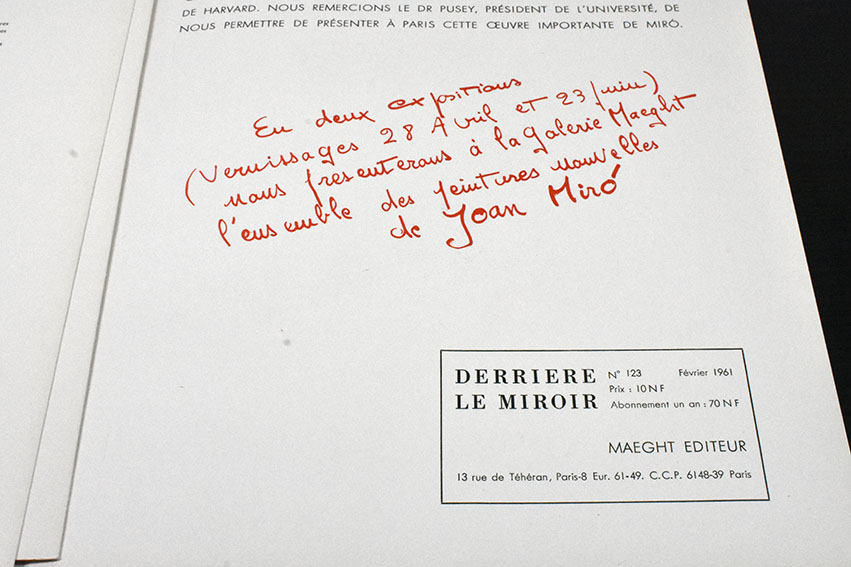 DE HARVARD. NOUS REMERCIONS LE DR PUSEY, PRÉSIDENT DE L'UNIVERSITÉ, DE
NOUS PERMETTRE DE PRÉSENTER À PARIS CETTE ŒUVRE IMPORTANTE DE MIRÓ.
En deux expositions
(Vernissages 28 Avril et 23 juin)
nous présenterons à la Galerie Maeght
l'ensemble des peintures nouvelles
de Joan Miró
DERRIERE
LE MIROIR
N° 123 Février 1961
Prix : 10 NF
Abonnement un an : 70 NF
MAEGHT EDITEUR
13 rue de Téhéran, Paris-8 Eur. 61-49. C.C.P. 6148-39 Paris